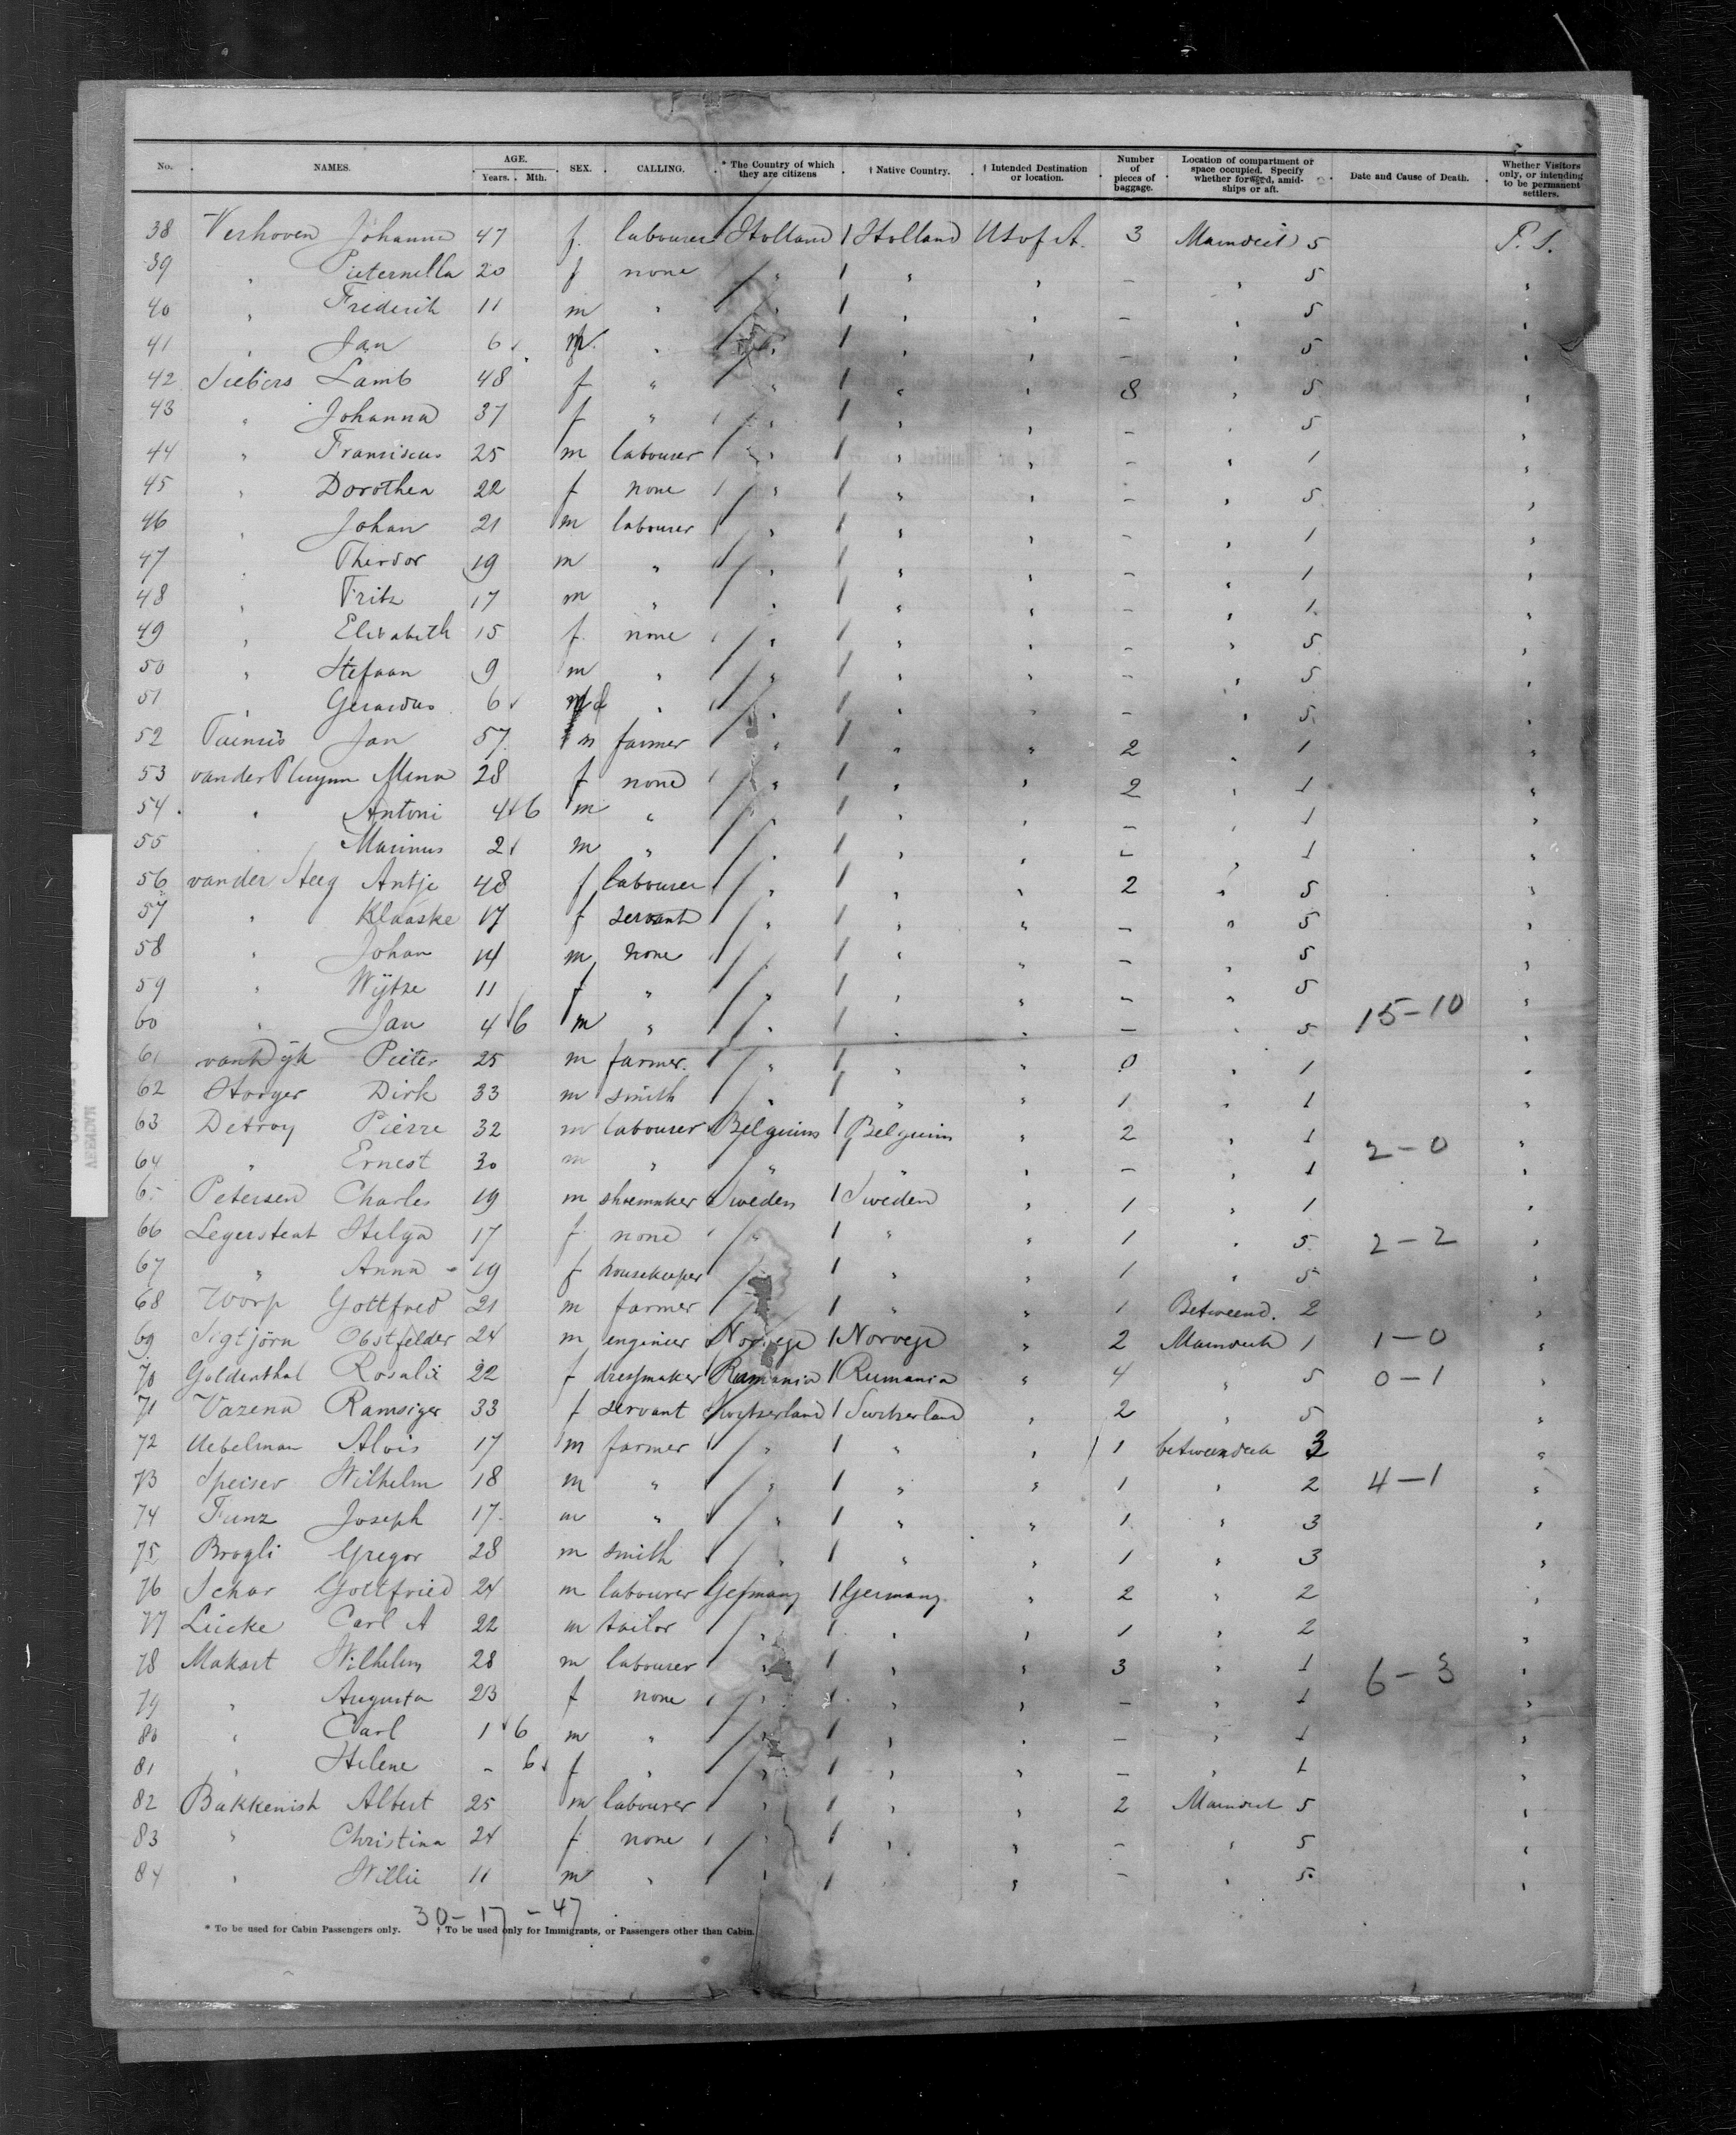 No. NAMES. AGE. Years. Mth. SEX. CALLING. * The Country of which they are citizens † Native Country. † Intended Destination or location. Number of pieces of baggage. Location of compartment or space occupied. Specify whether forward, amidships or aft. Date and Cause of Death. Whether Visitors only, or intending to be permanent settlers.
38 Verhoven Johanna 47 f. labourer Holland Holland US of A. 3 Maindeck 5 P. S.
39 " Pieternella 20 f none " " " – " 5 "
40 " Frederik 11 m " " " " – " 5 "
41 " Jan 6 " " " " – " 5 "
42 Siebers Lamb 48 f " " " " 8 " 5 "
43 " Johanna 37 f " " " " – " 5 "
44 " Franciscus 25 m labourer " " " – " 1 "
45 " Dorothea 22 f none " " " – " 5 "
46 " Johan 21 m labourer " " " – " 1 "
47 " Theodor 19 m " " " " – " 1 "
48 " Fritz 17 m " " " " – " 1 "
49 " Elisabeth 15 f none " " " – " 5 "
50 " Stefaan 9 m " " " " – " 5 "
51 " Gerardus 6 " " " " – " 5 "
52 Jan 57 m farmer " " " 2 " 1 "
53 van der Pluym Mina 28 f none " " " 2 " 1 "
54 " Antoni 4 6 m " " " " – " 1 "
55 " Marinus 2 m " " " " – " 1 "
56 van der Steeg Antje 48 f labourer " " " 2 " 5 "
57 " Klaaske 17 f servant " " " – " 5 "
58 " Johan 14 m none " " " – " 5 "
59 " Wijtze 11 f " " " " – " 5 "
60 " Jan 4 6 m " " " " – " 5 15–10 "
61 van Dijk Pieter 25 m farmer " " " 0 " 1 "
62 Stooger Dirk 33 m smith " " " 1 " 1 "
63 Detroy Pierre 32 m labourer Belgium Belgium " 2 " 1 "
64 " Ernest 30 m " " " " – " 1 2–0 "
65 Petersen Charles 19 m shoemaker Sweden Sweden " 1 " 1 "
66 Helga 17 f none " " " 1 " 5 2–2 "
67 " Anna 19 f housekeeper " " " 1 " 5 "
68 Worp Gottfred 21 m farmer " " " 1 Betweend. 2 "
69 Sigtjörn Obstfelder 24 m engineer Norvege Norvege " 2 Maindeck 1 1–0 "
70 Goldenthal Rosalie 22 f dressmaker Rumania Rumania " 4 " 5 0–1 "
71 Vazena Ramsiger 33 f servant Switserland Switserland " 2 " 5 "
72 Uebelman Alois 17 m farmer " " " 1 betweendeck 3 "
73 Speiser Wilhelm 18 m " " " " 1 " 2 4–1 "
74 Funz Joseph 17 m " " " " 1 " 3 "
75 Brogli Gregor 28 m smith " " " 1 " 3 "
76 Schar Gottfried 24 m labourer Germany Germany " 2 " 2 "
77 Lücke Carl A 22 m tailor " " " 1 " 2 "
78 Makart Wilhelm 28 m labourer " " " 3 " 1 6–3 "
79 " Augusta 23 f none " " " – " 1 "
80 " Carl 1 6 m " " " " – " 1 "
81 " Helene – 6 f " " " " – " 1 "
82 Bakkenish Albert 25 m labourer " " " 2 Maindeck 5 "
83 " Christina 24 f none " " " – " 5 "
84 " Willie 11 m " " " " – " 5 "
30–17–47
* To be used for Cabin Passengers only. † To be used only for Immigrants, or Passengers other than Cabin.